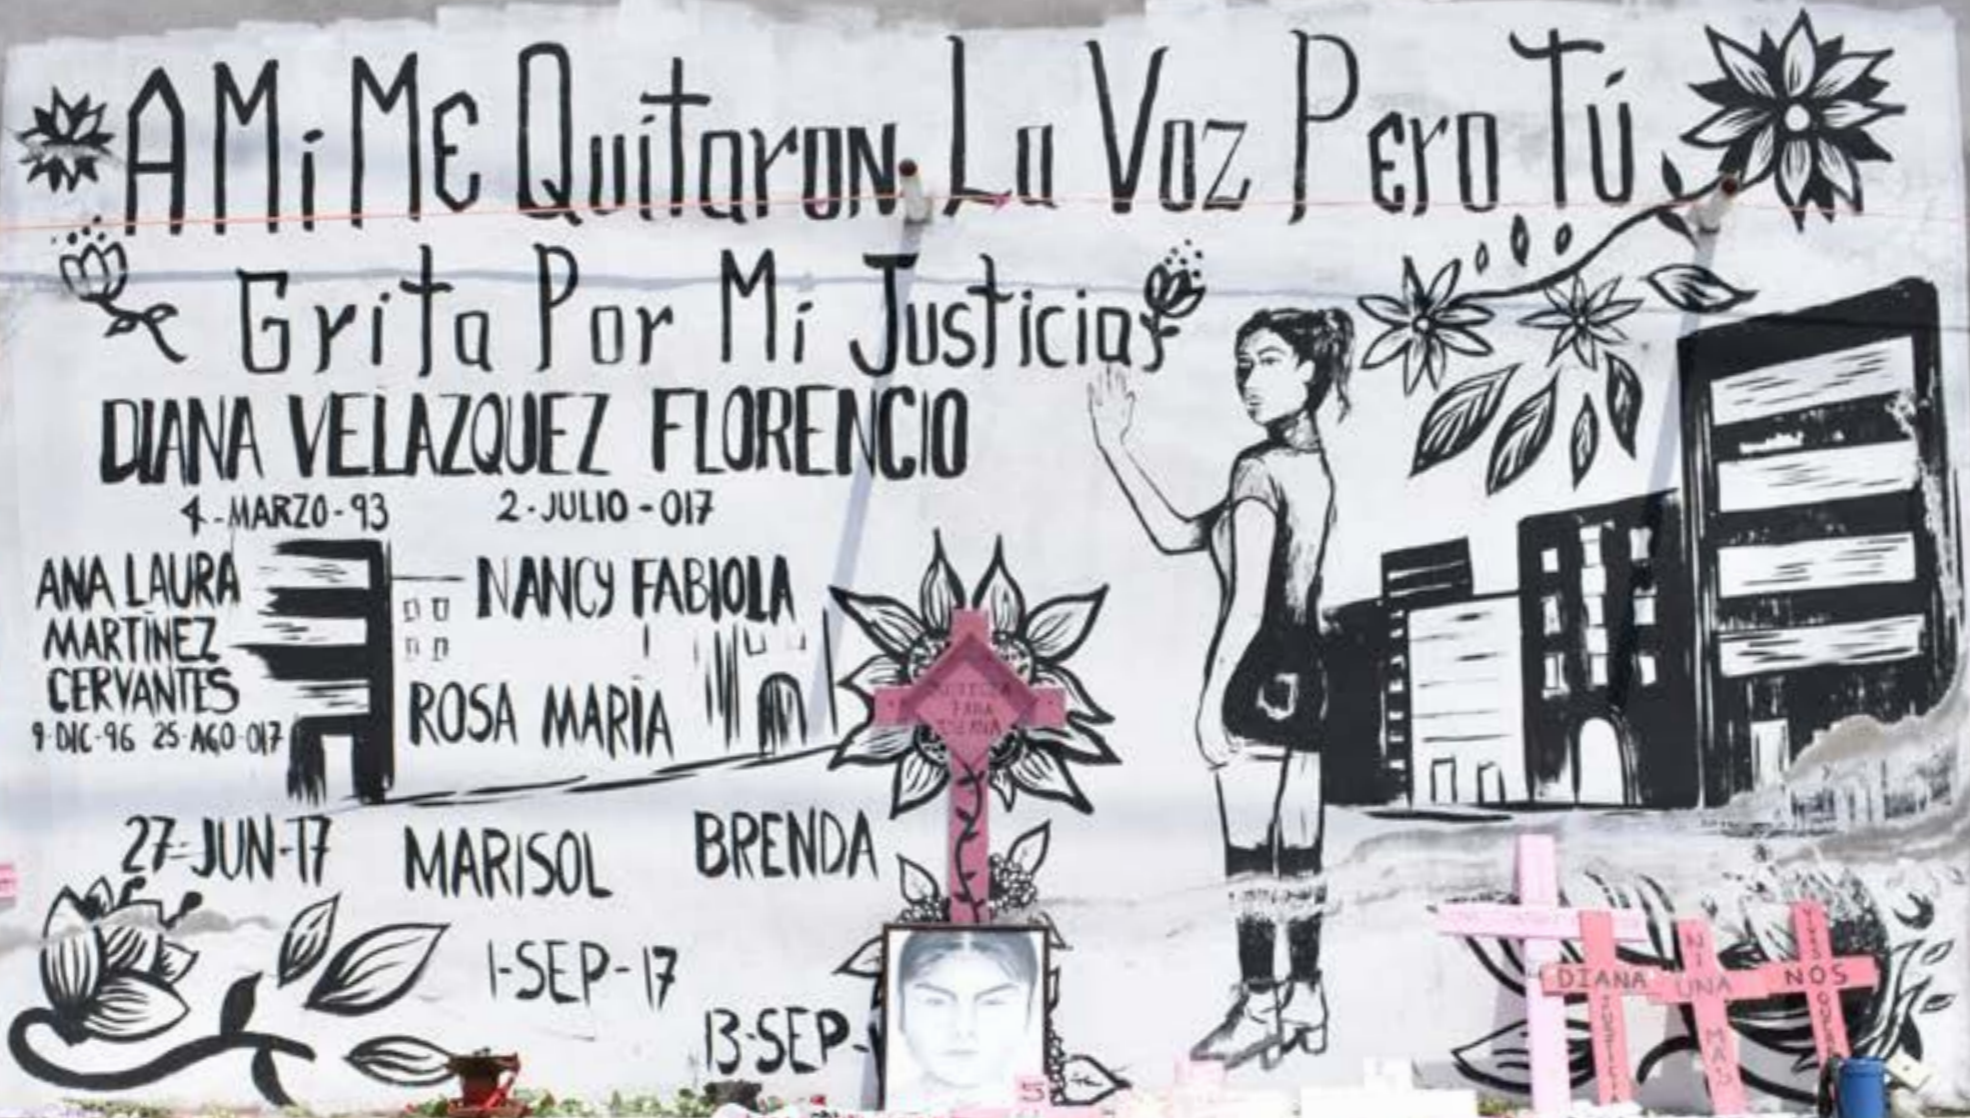 A Mi Me Quitaron La Voz Pero Tú
Grita Por Mi Justicia
DIANA VELAZQUEZ FLORENCIO
4-MARZO-93 2-JULIO-017
ANA LAURA
MARTÍNEZ
CERVANTES
9-DIC-96 25-AGO-017
NANCY FABIOLA
ROSA MARÍA
27-JUN-17 MARISOL BRENDA
1-SEP-17
13-SEP-
JUSTICIA
PARA
DIANA
NI
UNA
MAS
NOS
5